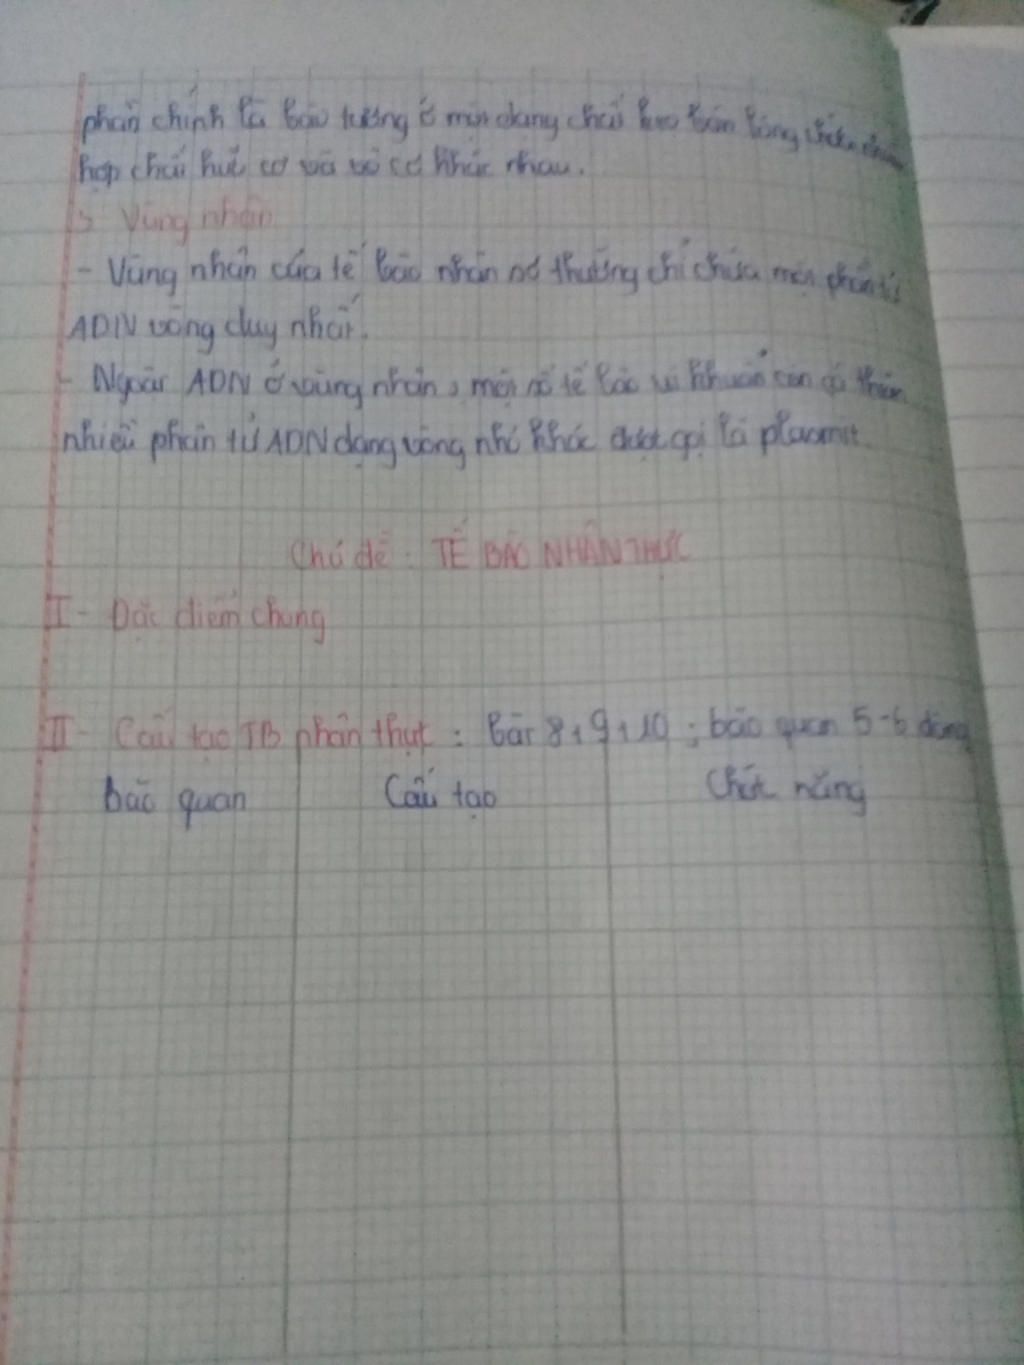 phần chính là bào tương ở một dạng chất keo bán lỏng chứa nhiều
hợp chất hữu cơ và vô cơ khác nhau.
3 Vùng nhân
- Vùng nhân của tế bào nhân sơ thường chỉ chứa một phân tử
ADN vòng duy nhất.
- Ngoài ADN ở vùng nhân, một số tế bào vi khuẩn còn có thêm
nhiều phân tử ADN dạng vòng nhỏ khác được gọi là plasmit.
Chủ đề: TẾ BÀO NHÂN THỰC
I - Đặc điểm chung
II - Cấu tạo TB nhân thực : Bài 8+9+10 ; bào quan 5-6 dòng
bào quan Cấu tạo Chức năng